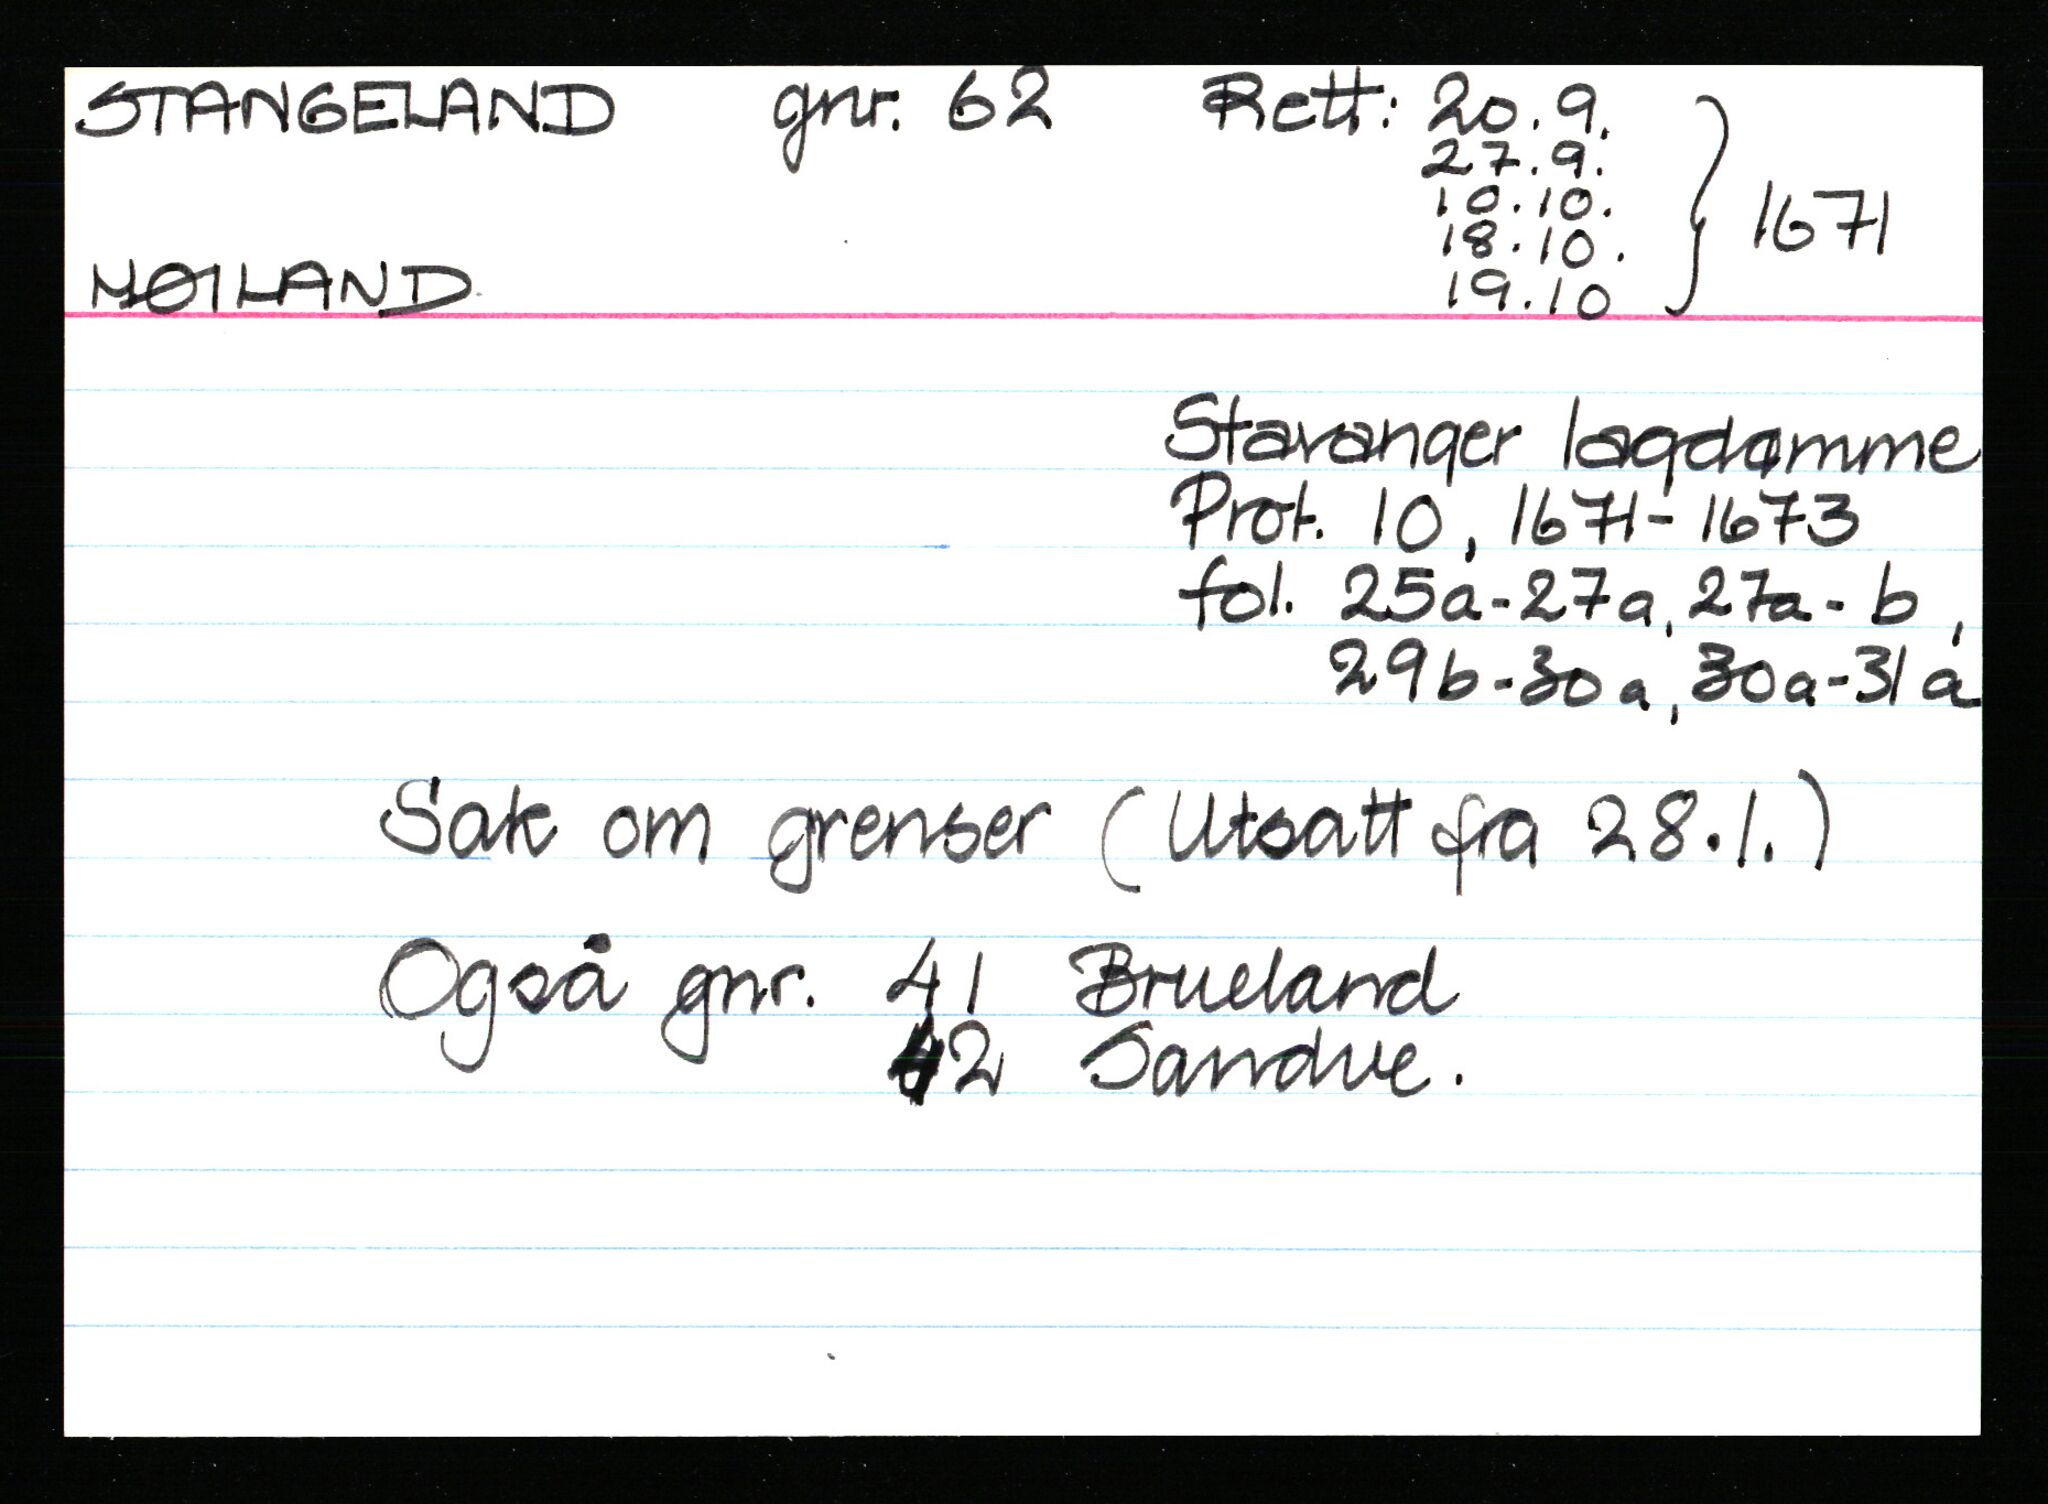 STANGELAND gnr. 62 Rett: 20.9.
27.9.
10.10.
18.10. } 1671
19.10
HØILAND
Stavanger lagdømme
Prot. 10, 1671-1673
fol. 25a-27a, 27a-b,
29b-30a, 30a-31a
Sak om grenser (Utsatt fra 28.1.)
Også gnr. 41 Brueland
42 Sandve.